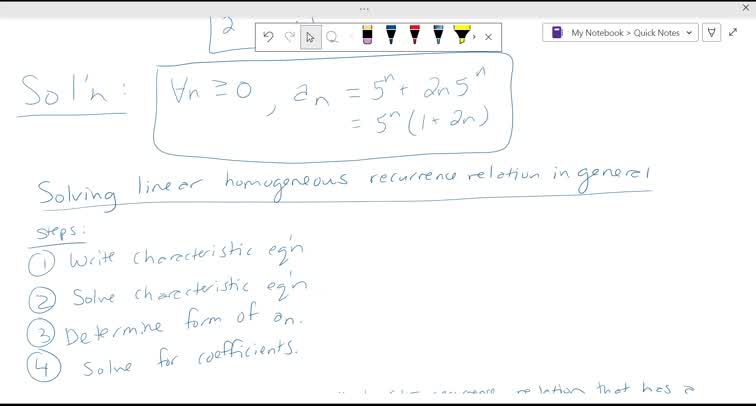 2
My Notebook > Quick Notes
Sol'n:
∀n ≥ 0, aₙ = 5ⁿ + 2n5ⁿ
= 5ⁿ(1 + 2n)
Solving linear homogeneous recurrence relation in general
Steps:
① Write characteristic eq'n
② Solve characteristic eq'n
③ Determine form of aₙ.
④ Solve for coefficients.
recurrence relation that has a